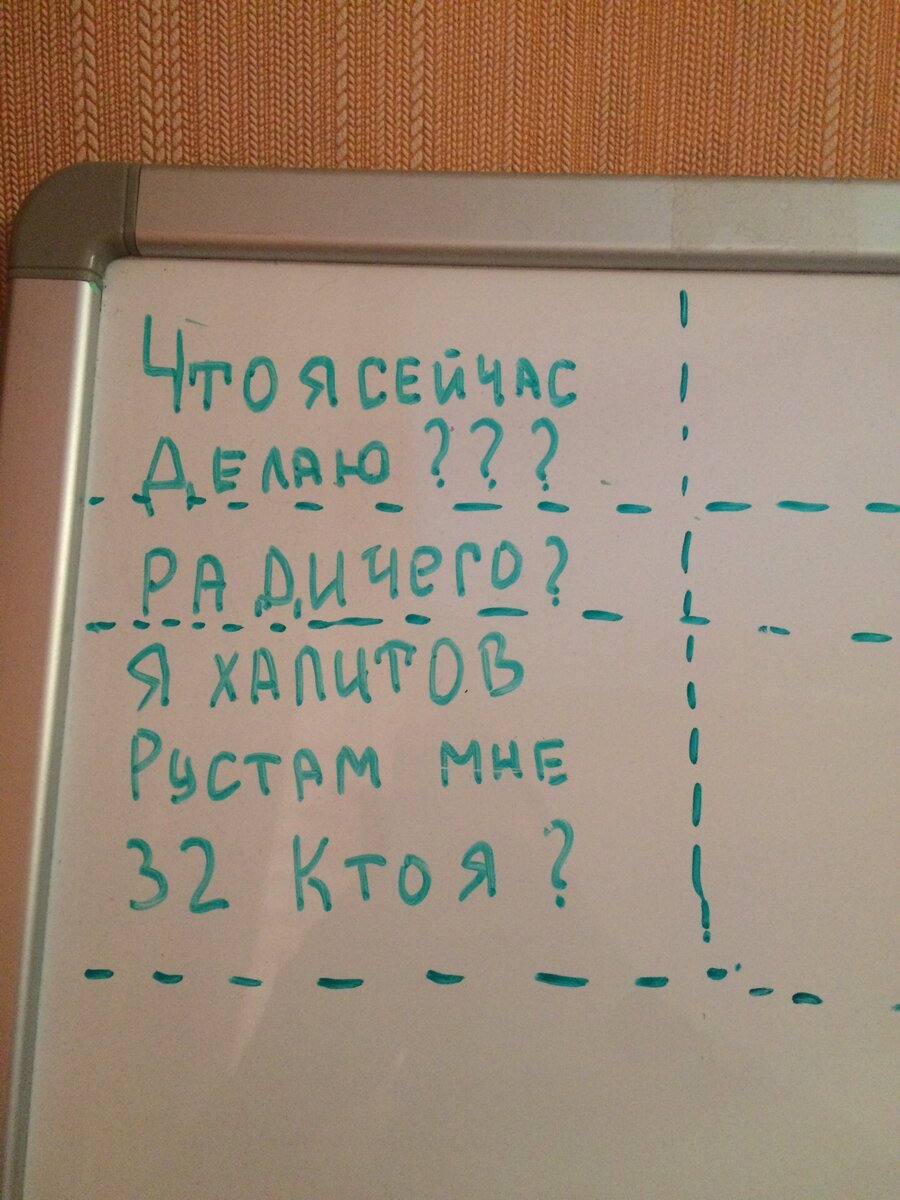 Что я сейчас
Делаю ???
Ради чего?
Я хапитов
Рустам мне
32 Кто я ?